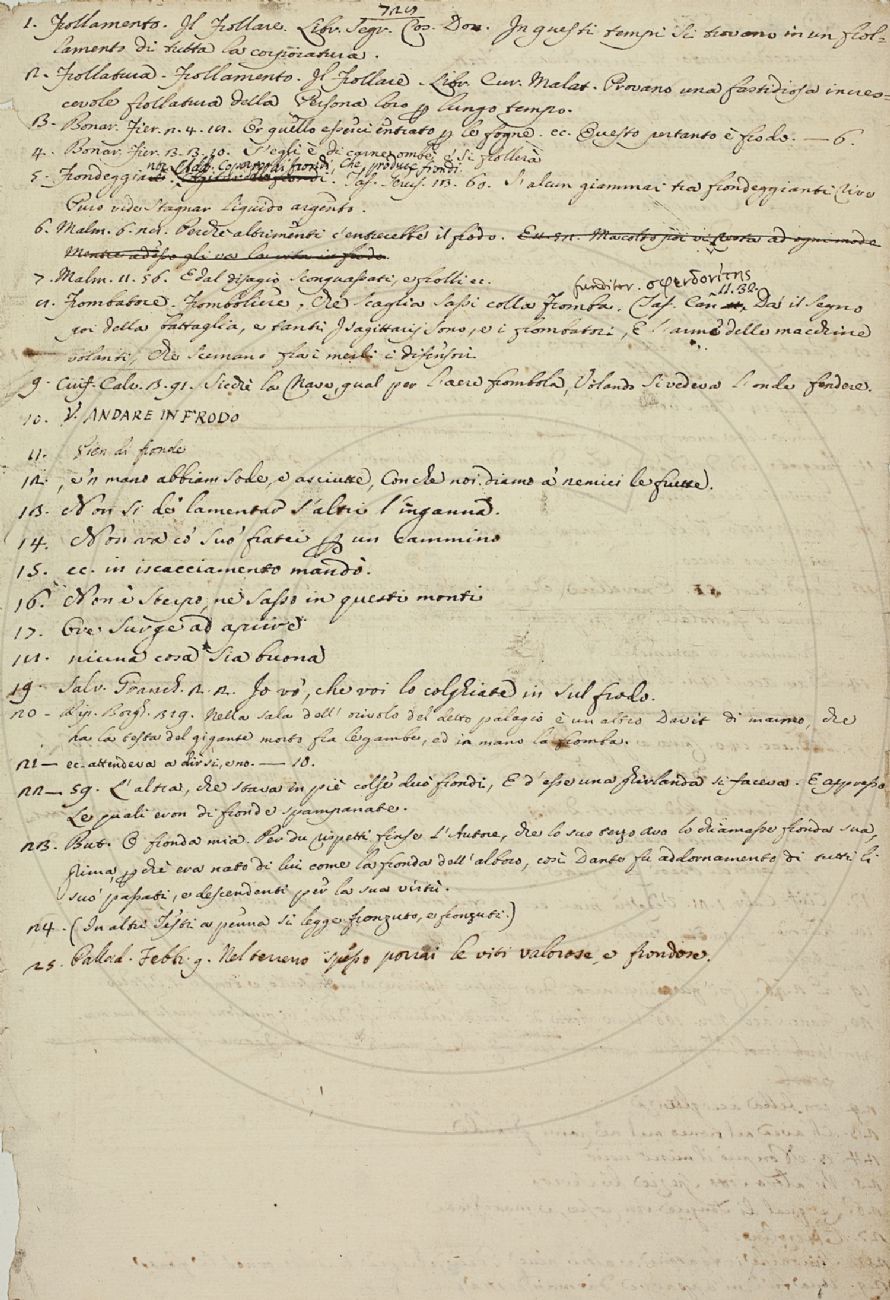 729
1. Frollamento. Il frollare. Libr. Segr. Cos. Don. In questi tempi si trovano in un frol-
lamento di tutta la corporatura.
2. Frollatura. Frollamento. Il frollare. Libr. Cur. Malat. Provano una fastidiosa incres-
cevole frollatura della Persona loro per lungo tempo.
3. Bonar. Fier. 2. 4. 18. Er quello esserci entrato per le fogne. ec. Questo pertanto è frodo. — 6.
4. Bonar. Fier. 3. 3. 10. S'egli è di carne ombè, è si frollerà
Che produce frondi.
5. Frondeggia Tass. Gerus. 13. 60. S'alcun giammai tra frondeggianti rive
Puro vide stagnar liquido argento.
6. Malm. 6. Perchè altrimenti c'entrerebbe il frodo.
Mentre
7. Malm. 11. 56. E dal disagio sconquassati, e frolli ec.
funditor. σφενδονίτης
8. Frombatore. Fromboliere. Che scaglia sassi colla Fromba. Tass. Ger. 11. 32. Dà il segno
poi della battaglia, e tanti sagittarj sono, e i frombatori, E l'arme delle macchine
volanti, che scemano fra i merli i difensori.
9. Ciriff. Calv. 3. 91. Sicchè la Nave, qual per l'aere frombola, Volando si vedeva l'onde fendere.
10. V. ANDARE IN FRODO
11. Pien di fronde
12. , e'n mano abbiam sode, e asciutte, Con che noi diamo a' nemici le frutte.
13. Non si dee lamentar s'altri l'inganna.
14. Non va co' suo' fratei per un cammino
15. ec. in iscacciamento mandò.
16. Non è sterpo, nè sasso in questi monti
17. Ove surge ad aprire
18. niuna cosa sia buona
19. Salv. Granch. 2. 2. Io vo', che voi lo cogghiate in sul frodo.
20 – Rip. Borgh. 329. Nella sala dell' orivolo del detto palagio è un altro Davit di marmo, che
ha la testa del gigante morto fra le gambe, ed in mano la fromba.
21 — ec. attendeva a dir si, e no. — 10.
22 — 59. L'altra, che stava in piè colse duo frondi, E d'esse una ghirlanda si faceva. E appresso
Le quali eron di fronde spampanate.
23. But. O fronda mia. Per du rispetti finse l'Autore, che lo suo terzo avo lo chiamasse fronda sua,
prima, perchè era nato di lui come la fronda dell'albero, così Dante fu addornamento di tutti li
suo' passati, e descendenti per la sua virtù.
24. (In altri Testi a penna si legge fronzuto, e fronzuti.)
25. Pallad. Febbr. 9. Nel terreno spesso porrai le viti valorose, e frondose.